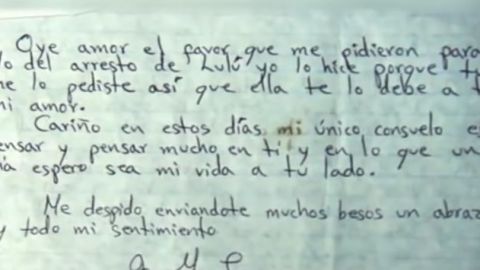 Oye amor el favor que me pidieron para
lo del arresto de Lulú yo lo hice porque t
me lo pediste así que ella te lo debe a t
mi amor.
Cariño en estos días mi único consuelo e
ensar y pensar mucho en ti y en lo que un
ía espero sea mi vida a tu lado.
Me despido enviandote muchos besos un abraz
y todo mi sentimiento